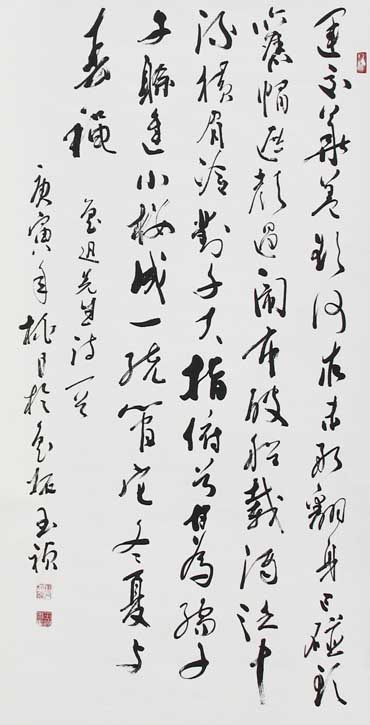 運交華蓋欲何求未敢翻身已碰頭
舊帽遮顏過鬧市破船載酒泛中
流橫眉冷對千夫指俯首甘為孺子
牛躲進小樓成一統管它冬夏與
春秋
魯迅先生詩一首
庚寅年桃月於魯玉禎